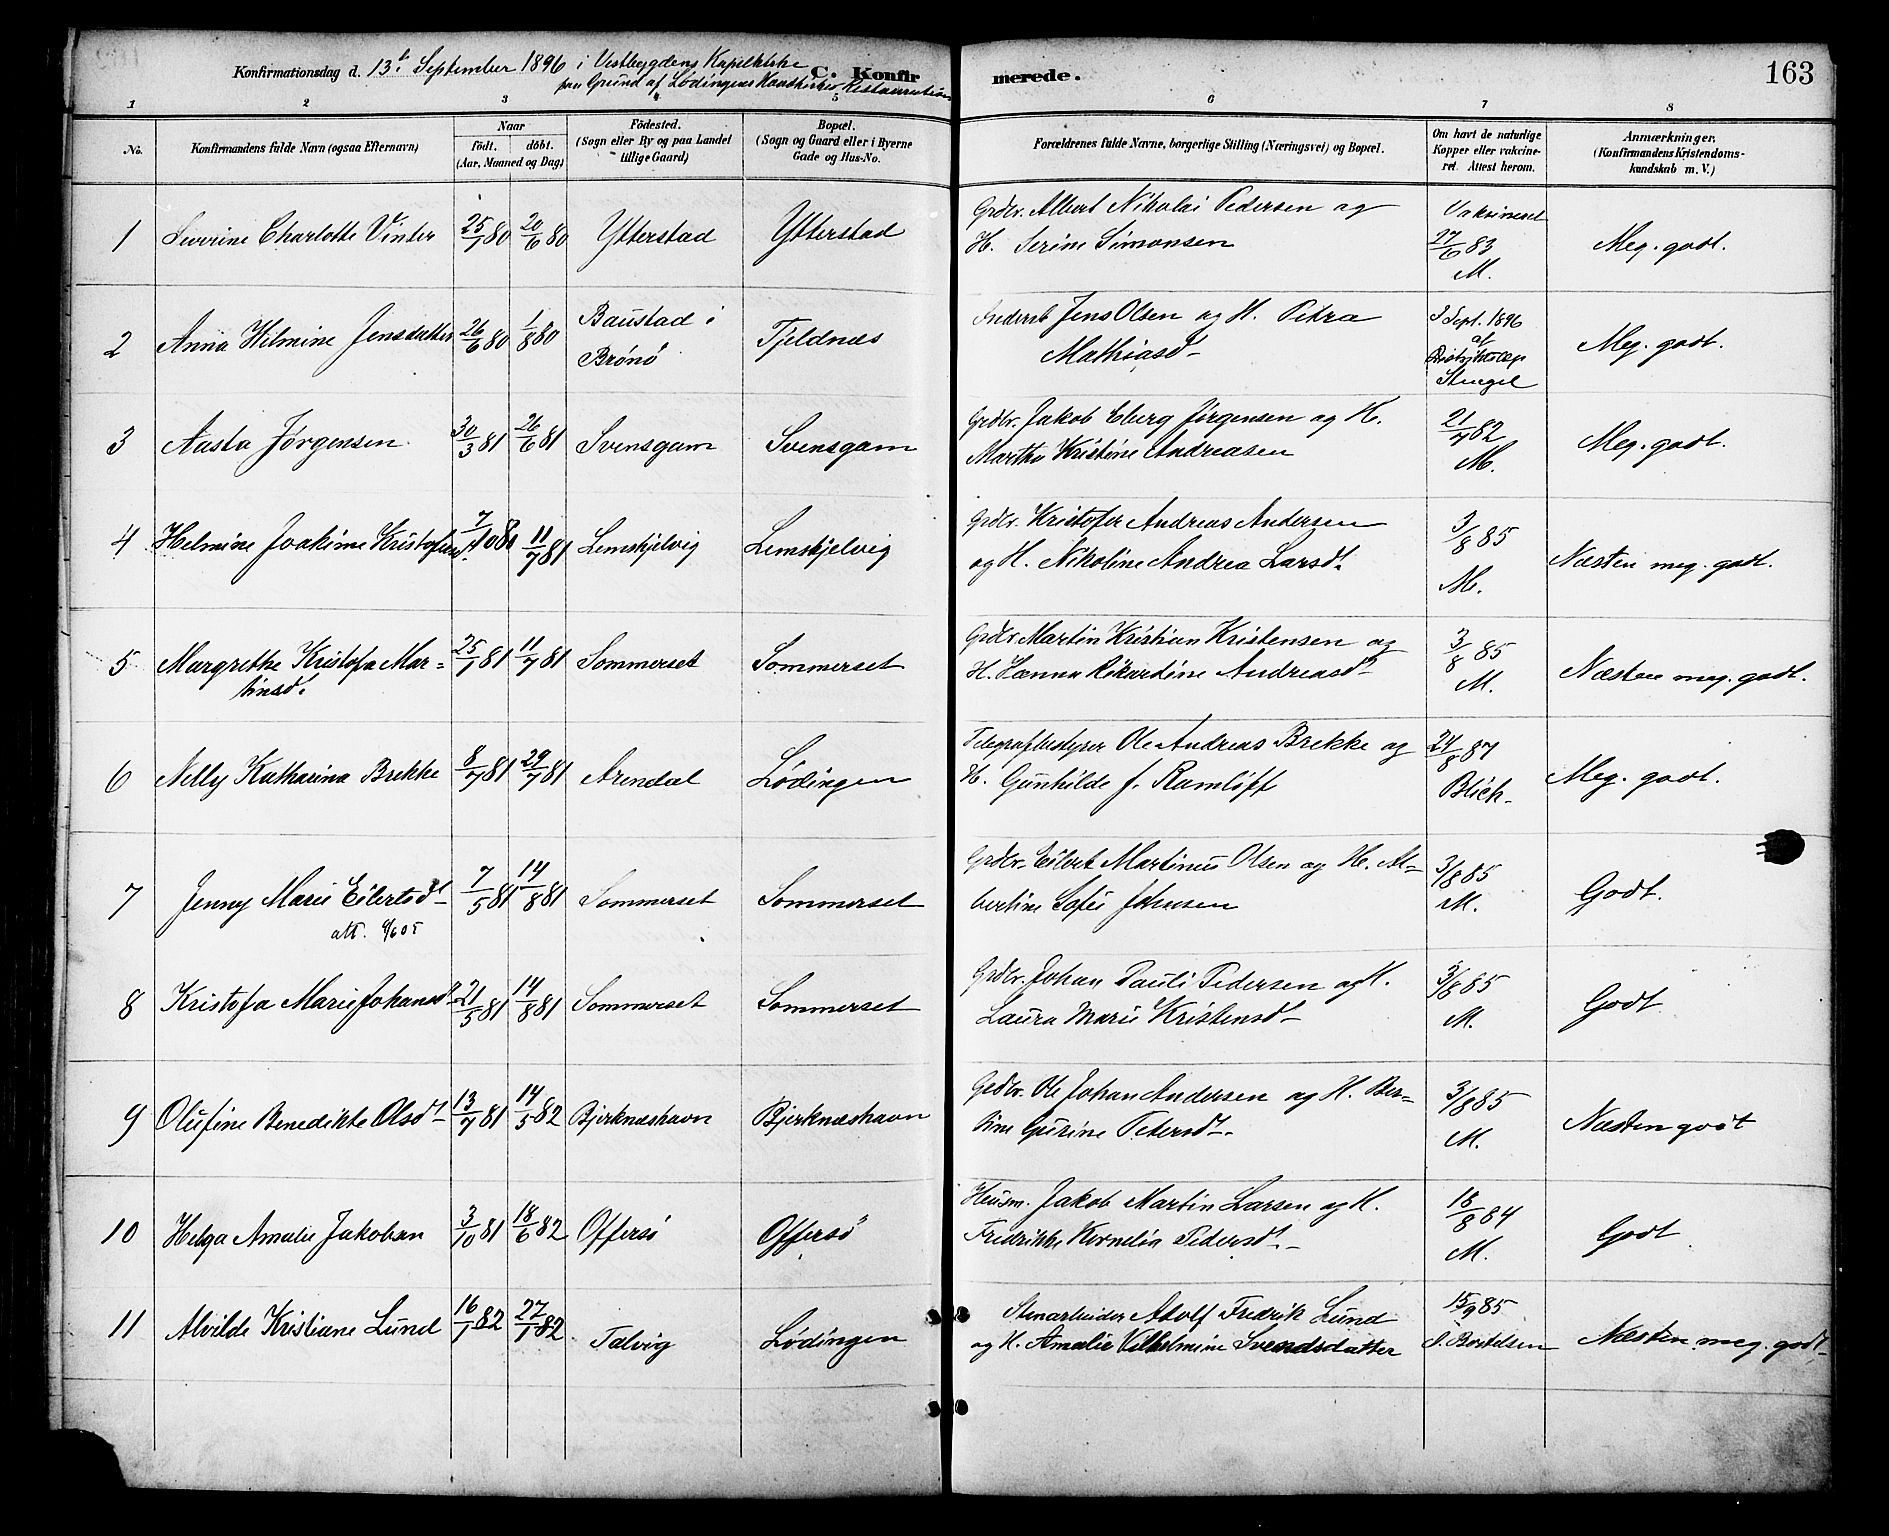 Konfirmationsdag d. 13de September 1896 i Vestbygdens Kapelkirke
paa Grund af Lødingens Restauration
C. Konfir merede. 163
1 2 3 4 5 6 7 8
No. Konfirmandens fulde Navn (ogsaa Efternavn) Naar født. døbt. (Aar, Maaned og Dag) Fødested. (Sogn eller By og paa Landet tillige Gaard) Bopæl. (Sogn og Gaard eller i Byerne Gade og Hus-No. Forældrenes fulde Navne, borgerlige Stilling (Næringsvei) og Bopæl. Om havt de naturlige Kopper eller vakcineret. Attest herom. Anmærkninger, (Konfirmandens Kristendomskundskab m. V.)
1 Severine Charlotte Vinter 25/1 80 20/6 80 Ytterstad Ytterstad Grdbr. Albert Nikolai Pedersen og Vaksineret
H. Serine Simonsen 27/6 83 Meg. godt.
M.
2 Anna Helmine Jensdatter 26/6 80 1/8 80 Baustad i Tjeldnæs Jens Olsen og H. Petra 3 Sept. 1896
Brønø Mathiasd. af Meg. godt.
Distriktslæge
Stengel
3 Aasta Jørgensen 30/3 81 26/6 81 Svensgam Svensgam Grdbr. Jakob Eberg Jørgensen og H. 21/7 82
Martha Kristine Andreasen M. Meg. godt.
4 Helmine Joakime Kristofersd. 7/10 80 11/7 81 Lemskjelvig Lemskjelvig Grdbr. Kristofer Andreas Andersen 3/8 85
og H. Nikoline Andrea Larsdt. M. Næsten meg. godt.
5 Margrethe Kristofa Mar- 25/1 81 11/7 81 Sommerset Sommerset Grdbr Martin Kristian Kristensen og 3/8 85
tinsd. H. Hanna Rikardine Andreasdt M. Næsten meg. godt.
6 Nelly Katharina Brekke 8/7 81 29/7 81 Arendal Lødingen Telegrafbestyrer Ole Andreas Brekke og 24/8 87
H. Gunhilde f. Ramløff Blich Meg. godt.
7 Jenny Marie Eilertsdt 7/5 81 14/8 81 Sommerset Sommerset Grdbr. Eilert Martinus Olsen og H. Al- 3/8 85
att. 9/6 05 bertine Sofie Johnsen M. Godt.
8 Kristofa Marie Johansdt 21/5 81 14/8 81 Sommerset Sommerset Grdbr. Johan Pauli Pedersen og H. 3/8 85
Laura Marie Kristensdt M. Godt
9 Olufine Benedikte Olsdt 13/7 81 14/5 82 Bjerknæshavn Bjerknæshavn Grdbr. Ole Johan Andersen og H. Ber- 3/8 85
tine Gurine Petersdt. M. Næsten godt
10 Helga Amalie Jakobsen 3/10 81 18/6 82 Offersø Offersø Husm. Jakob Martin Larsen og H. 18/8 84
Fredrikke Kornelia Pedersdt. M. Godt
11 Alvilde Kristiane Lund 16/1 82 27/1 82 Talvig Lødingen Stenarbeider Adolf Fredrik Lund 15/9 85
og H. Amalie Vilhelmine Svendsdatter Næsten meg. godt